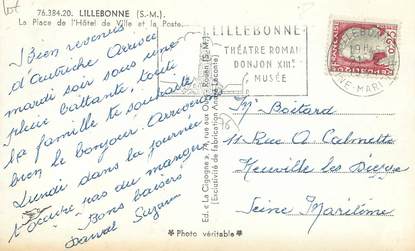 76.384.20. LILLEBONNE (S.-M.)
La Place de l'Hôtel de Ville et la Poste.
Bien revenus
d'Autriche Arrivée
mardi soir sous une
pluie battante, toute
la famille te souhaite
bien le bonjour. Arriverons
Lundi dans la journée
t'occupe pas du manger
Bons baisers
Ed. « La Cigogne », 74, rue aux Ours - Rouen (S.-M.)
(Exclusivité de fabrication André Leconte)
LILLEBONNE
THÉATRE ROMAIN
DONJON XIIIᵉ
MUSÉE
0,25
Mr Boitard
11 Rue A Calmette
Neuville les Dieppe
Seine Maritime
★ Photo véritable ★